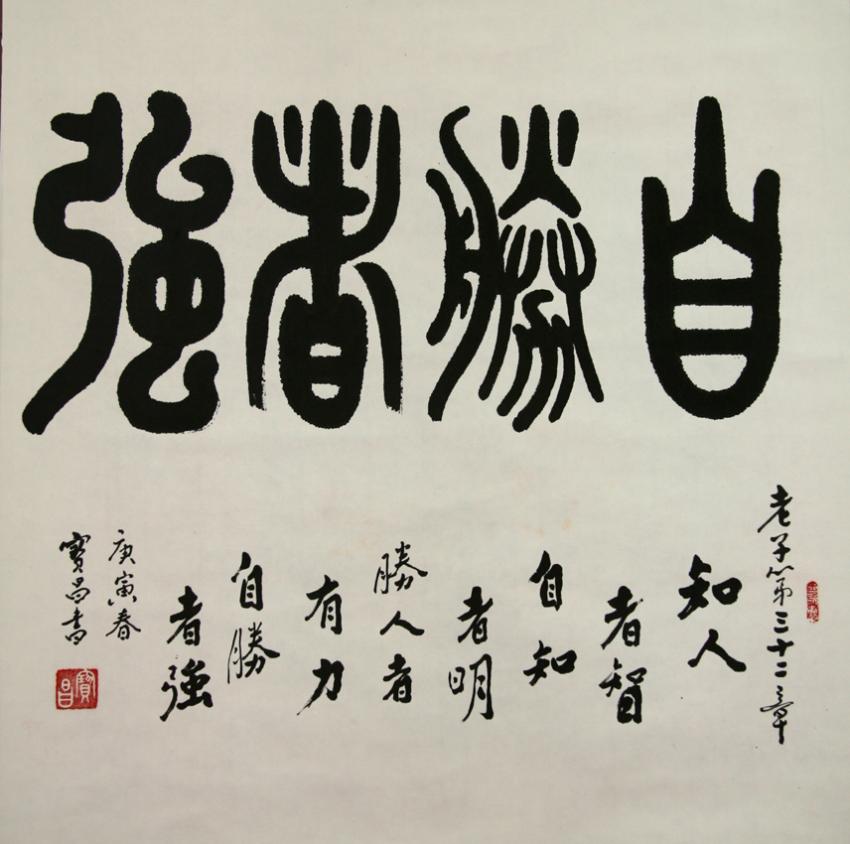 自勝者強
老子第三十二章
知人
者智
自知
者明
勝人者
有力
自勝
者強
庚寅春
寶昌書
寶昌